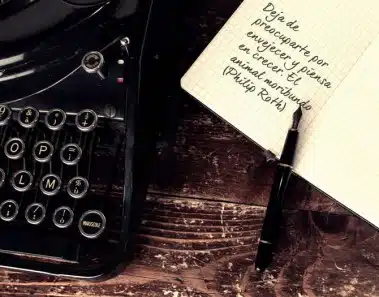 Deja de
preocuparte por
envejecer y piensa
en crecer. El
animal moribundo
(Philip Roth)
O P
L M